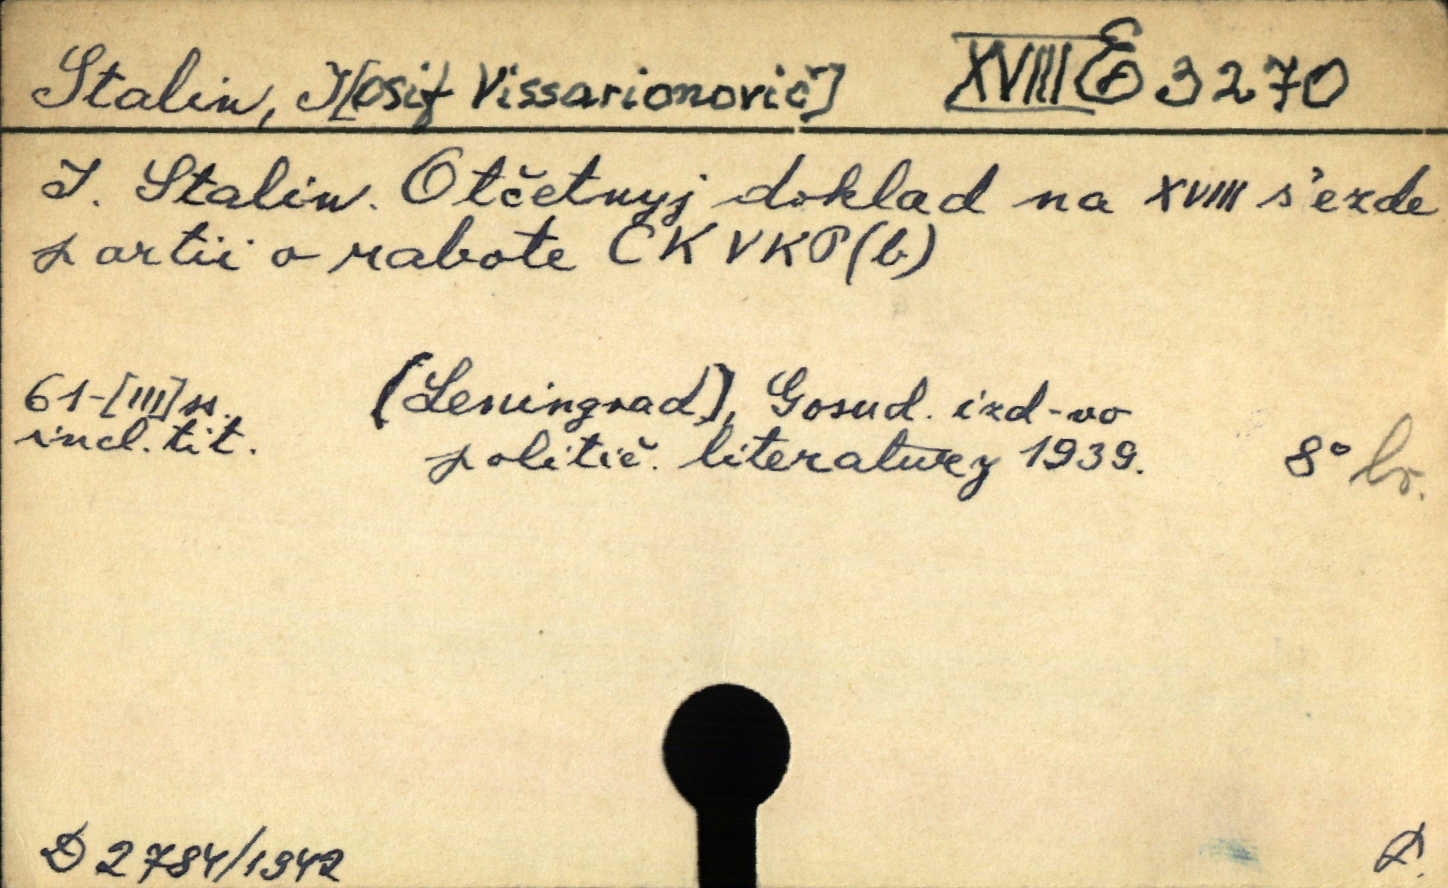 Stalin, I[osif Vissarionovič] XVIII E 3270
I. Stalin. Otčetnyj doklad na XVIII s"ezde
partii o rabote CK VKP(b)
61-[III] ss. (Leningrad), Gosud. izd-vo
incl. tit. politič. literatury 1939. 8° br.
D 2784/1942